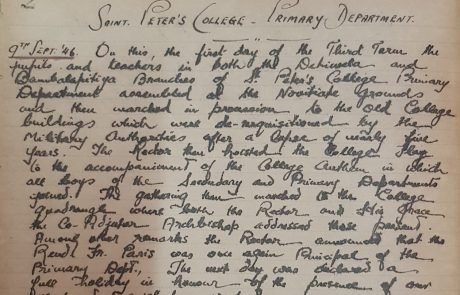 2
Saint Peter's College - Primary Department.
9th Sept '46. On this, the first day of the Third Term the
pupils and teachers in both the Dehiwela and
Bambalapitiya Branches of St Peter's College Primary
Department assembled at the Novitiate Grounds
and then marched in procession to the Old College
buildings which were de-requisitioned by the
Military Authorities after a lapse of nearly five
years. The Rector then hoisted the College Flag
to the accompaniment of the College Anthem in which
all boys of the Secondary and Primary Departments
joined. The gathering then marched to the College
Quadrangle where both the Rector and His Grace
the Co-Adjutor Archbishop addressed those present.
Among other remarks the Rector announced that the
Revd. Fr. Paris was once again Principal of the
Primary Dept. The next day was declared a
full holiday in honour of the presence of our